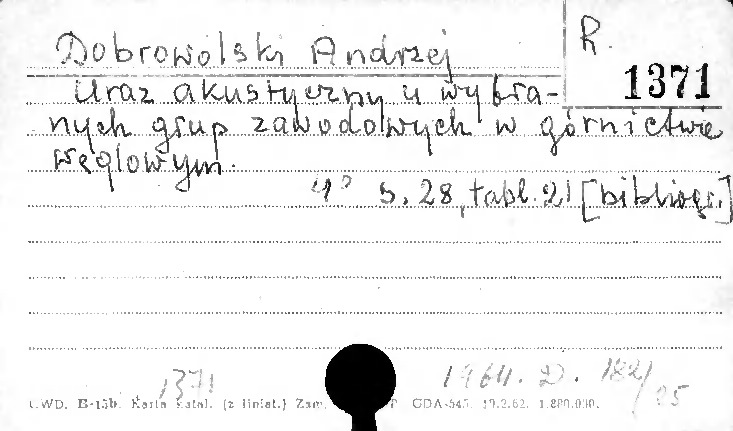 Dobrowolski Andrzej
R.
1371
Uraz akustyczny u wybra-
nych grup zawodowych w górnictwie
węglowym.
4° s. 28, tabl. 21 [bibliogr.]
1371
1964. D. 182/25
CWD. B-15b. Karta katal. (z liniat.) Zam. GDA-545. 19.2.62. 1.880.000.